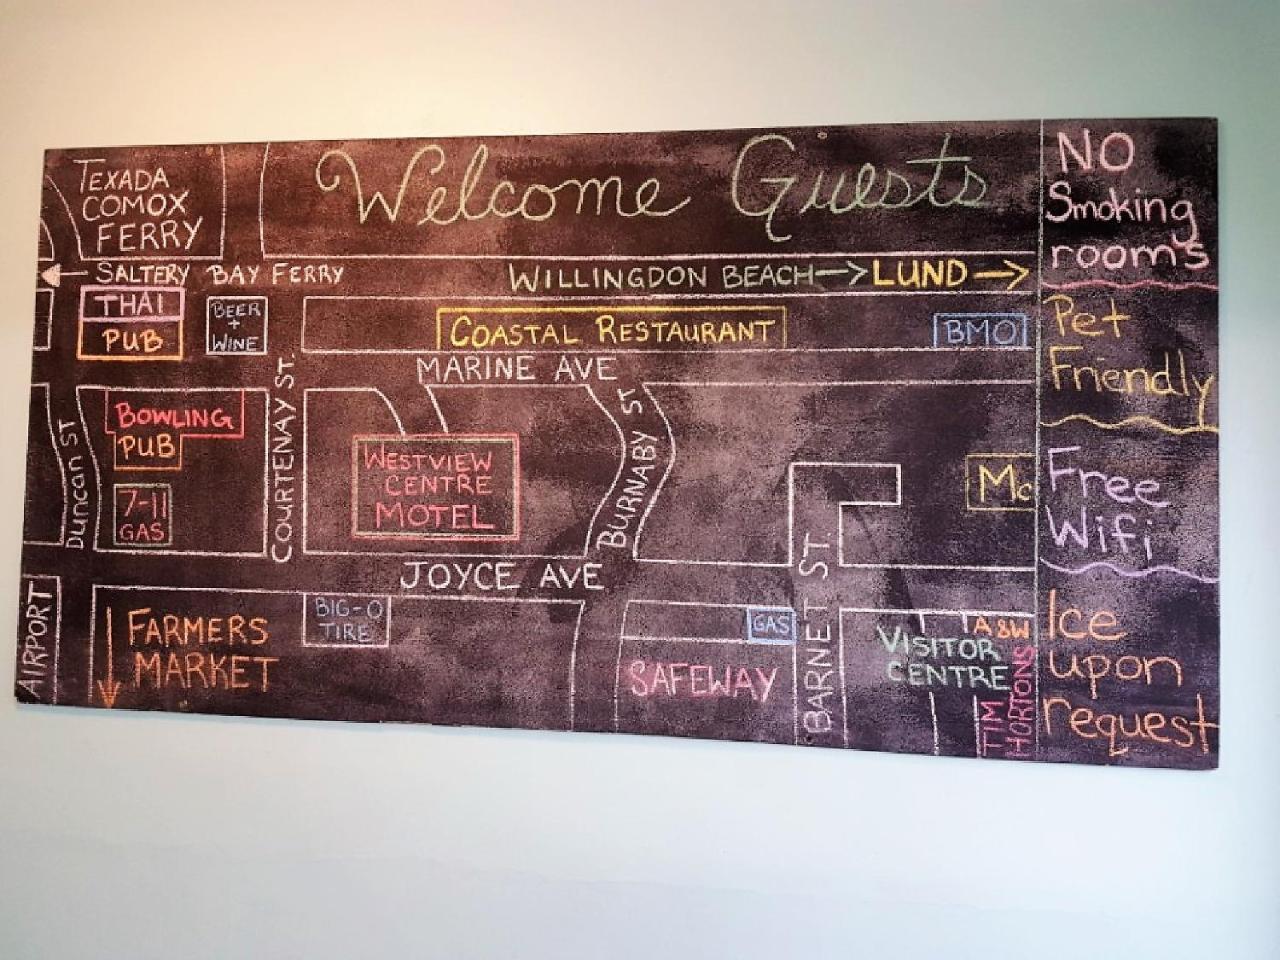 Welcome Guests
TEXADA
COMOX
FERRY
← SALTERY BAY FERRY
WILLINGDON BEACH → LUND →
THAI
PUB
BEER
+
WINE
COASTAL RESTAURANT
BMO
MARINE AVE
BOWLING
PUB
7-11
GAS
Duncan ST
COURTENAY ST.
WESTVIEW
CENTRE
MOTEL
BURNABY ST
Mc
JOYCE AVE
AIRPORT
FARMERS
MARKET
BIG-O
TIRE
GAS
SAFEWAY
BARNET ST.
VISITOR
CENTRE
A&W
TIM
HORTONS
NO
Smoking
rooms
Pet
Friendly
Free
Wifi
Ice
upon
request